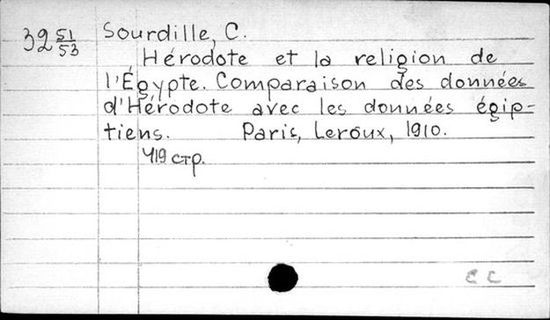 39 51/53 Sourdille, C.
Hérodote et la religion de
l'Égypte. Comparaison des données
d'Hérodote avec les données égip-
tiens. Paris, Leroux, 1910.
419 стр.
С С